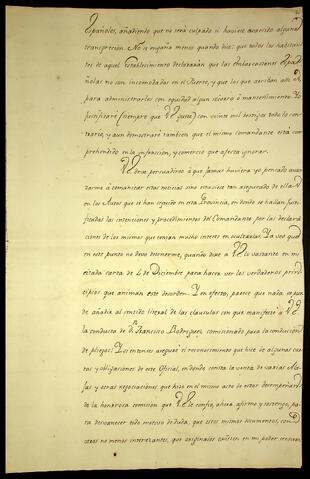 Españoles, añadiendo que no será culpado si huviere acaecido alguna
transgrecion. No se engaña menos quando dice: que todos los habitan
tes de aquel Establecimiento declararán que las Embarcaciones Espa
ñolas no son incomodadas en el Puerto, y que los que arriban allí es
para administrarles con equidad algun socorro ó mantenimiento. Yo
justificaré (siempre que VE guste) con veinte mil testigos todo lo con
trario, y aun demostraré tambien que el mismo Comandante está com
prehendido en la infraccion, y comercio que afecta ignorar.
VE deve persuadirse á que jamas huviera yo pensado avan
zarme á comunicar estas noticias sino estuviese tan asegurado de ellas
en los Autos que se han seguido en esta Provincia, en donde se hallan jus
ficadas las intenciones y procedimientos del Comandante por las declara
ciones de los mismos que tenian mucho interes en ocultarlas. Ya veo que
en este punto no devo detenerme, quando dixe á VE lo vastante en mi
citada carta de 4 de Diciembre para hacer ver los verdaderos prin
cipios que animan este desorden. Y en efecto, parece que nada es pue
de añadir al sentido literal de las clausulas con que manifesté á VE
la conducta de Dn. Francisco Rodriguez comisionado para la conduccion
de pliegos: Yo entonces aseguré el reconocimiento que hice de algunas cuen
tas y obligaciones de este Oficial, en donde consta la venta de varias Mu
las y otras negociaciones que hizo en el mismo acto de estar desempeñando
la honorosa comision que VE le confio, ahora afirmo y sostengo, pa
ra desvanecer todo motivo de duda, que estos mismos documentos, con
otros no menos interesantes, que originales existen en mi poder